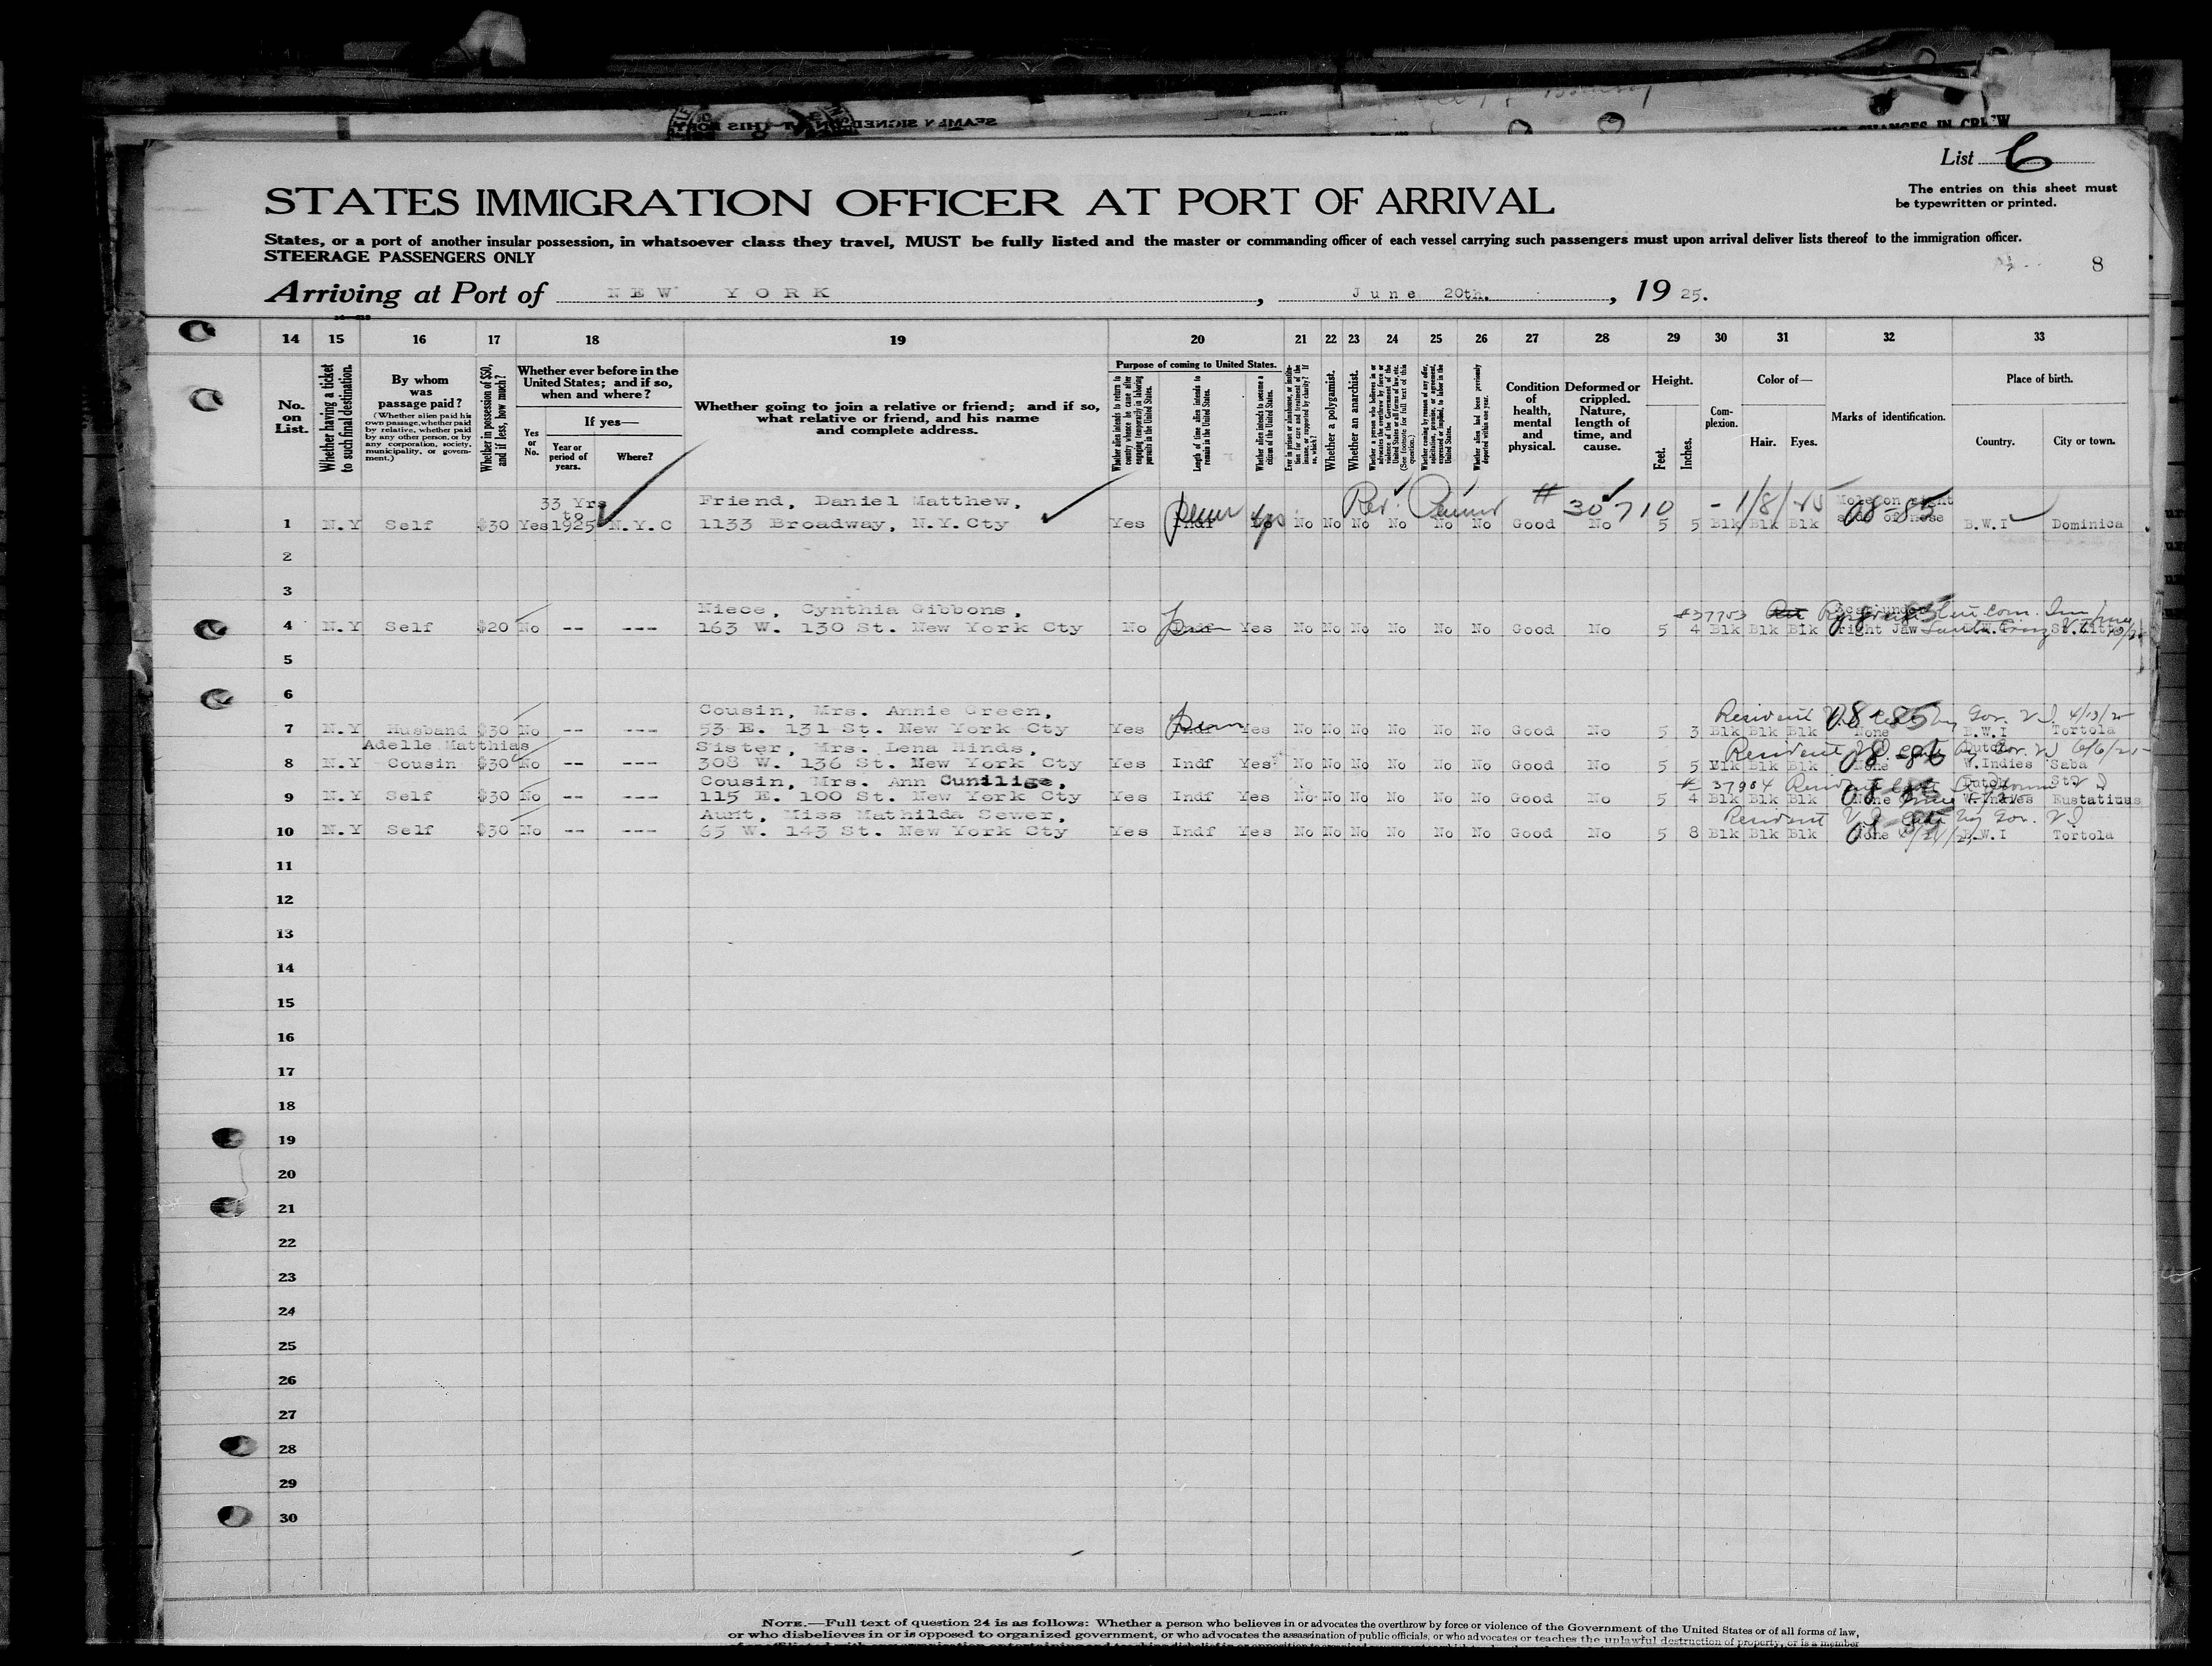 List 6
The entries on this sheet must
be typewritten or printed.
STATES IMMIGRATION OFFICER AT PORT OF ARRIVAL
States, or a port of another insular possession, in whatsoever class they travel, MUST be fully listed and the master or commanding officer of each vessel carrying such passengers must upon arrival deliver lists thereof to the immigration officer.
STEERAGE PASSENGERS ONLY
8
Arriving at Port of NEW YORK, June 20th., 1925.
14 15 16 17 18 19 20 21 22 23 24 25 26 27 28 29 30 31 32 33
No. on List.
Whether having a ticket to such final destination.
By whom was passage paid?
(Whether alien paid his own passage, whether paid by relative, whether paid by any other person, or by any corporation, society, municipality, or government.)
Whether in possession of $50, and if less, how much?
Whether ever before in the United States; and if so, when and where?
If yes—
Yes or No.
Year or period of years.
Where?
Whether going to join a relative or friend; and if so, what relative or friend, and his name and complete address.
Purpose of coming to United States.
Whether alien intends to return to country whence he came after engaging temporarily in laboring pursuits in the United States.
Length of time alien intends to remain in the United States.
Whether alien intends to become a citizen of the United States.
Whether a polygamist.
Whether an anarchist.
Condition of health, mental and physical.
Deformed or crippled. Nature, length of time, and cause.
Height.
Feet. Inches.
Complexion.
Color of—
Hair. Eyes.
Marks of identification.
Place of birth.
Country. City or town.
33 Yrs to Friend, Daniel Matthew, # 30710 - 1/8/25 Mole on right
1 N.Y Self $30 Yes 1925 N.Y.C 1133 Broadway, N.Y.Cty Yes Indf yes No No No No No No Good No 5 5 Blk Blk Blk side of nose 08-85 B.W.I Dominica
2
3
Niece, Cynthia Gibbons, #37753 Scar under
4 N.Y Self $20 No -- --- 163 W. 130 St. New York Cty No Indf Yes No No No No No No Good No 5 4 Blk Blk Blk right Jaw St.Kitts
5
6
Cousin, Mrs. Annie Green, Resident V.I. by Gov. V I 4/13/25
7 N.Y Husband $30 No -- --- 53 E. 131 St. New York Cty Yes Yes No No No No No No Good No 5 3 Blk Blk Blk None 08-85 B.W.I Tortola
Adelle Matthias Sister, Mrs. Lena Hinds, Resident Dutch
8 N.Y Cousin $30 No -- --- 308 W. 136 St. New York Cty Yes Indf Yes No No No No No No Good No 5 5 Blk Blk Blk None 08-86 W.Indies Saba
Cousin, Mrs. Ann Cunilige, # 37904 Dutch St
9 N.Y Self $30 No -- --- 115 E. 100 St. New York Cty Yes Indf Yes No No No No No No Good No 5 4 Blk Blk Blk None W.Indies Eustatius
Aunt, Miss Mathilda Sewer, Resident V.I. by Gov. V I
10 N.Y Self $30 No -- --- 65 W. 143 St. New York Cty Yes Indf Yes No No No No No No Good No 5 8 Blk Blk Blk None B.W.I Tortola
11
12
13
14
15
16
17
18
19
20
21
22
23
24
25
26
27
28
29
30
NOTE.—Full text of question 24 is as follows: Whether a person who believes in or advocates the overthrow by force or violence of the Government of the United States or of all forms of law,
or who disbelieves in or is opposed to organized government, or who advocates the assassination of public officials, or who advocates or teaches the unlawful destruction of property, or is a member